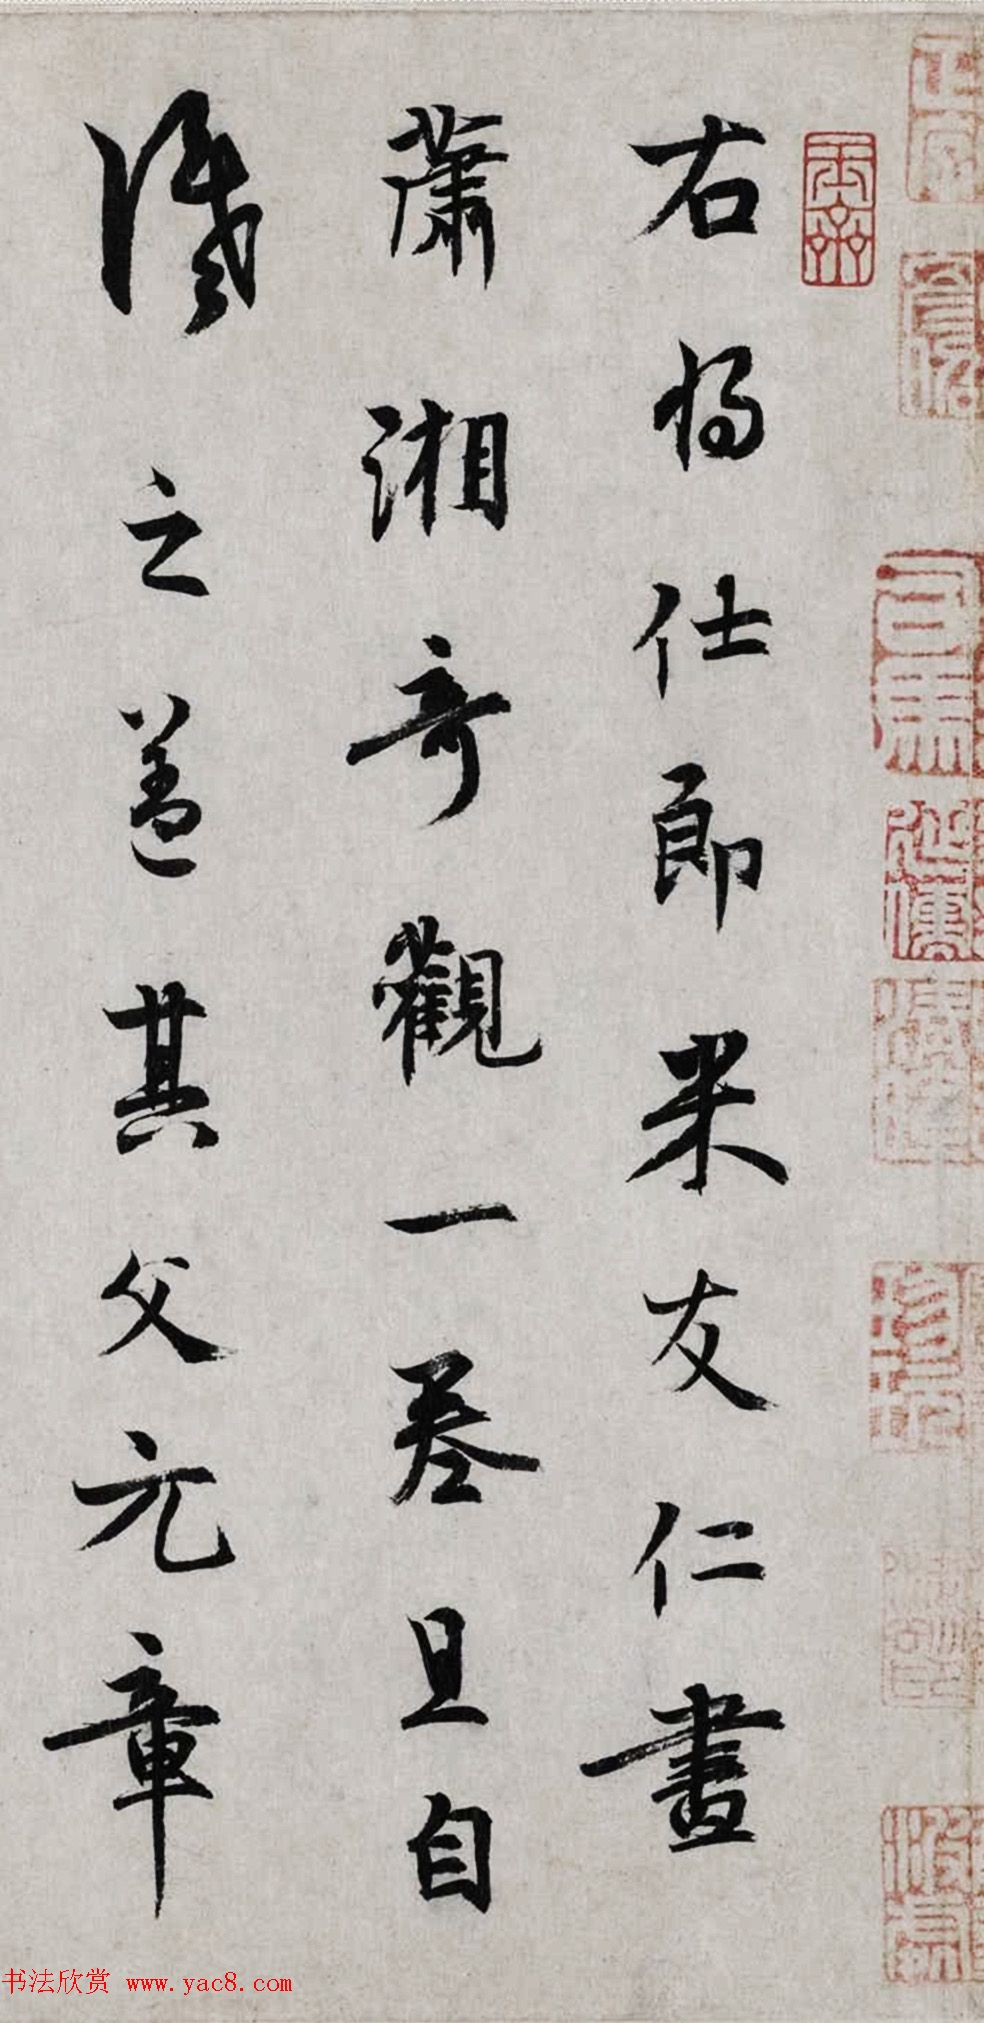 右將仕郎米友仁畫
瀟湘奇觀一卷且自
識之蓋其父元章
书法欣赏 www.yac8.com